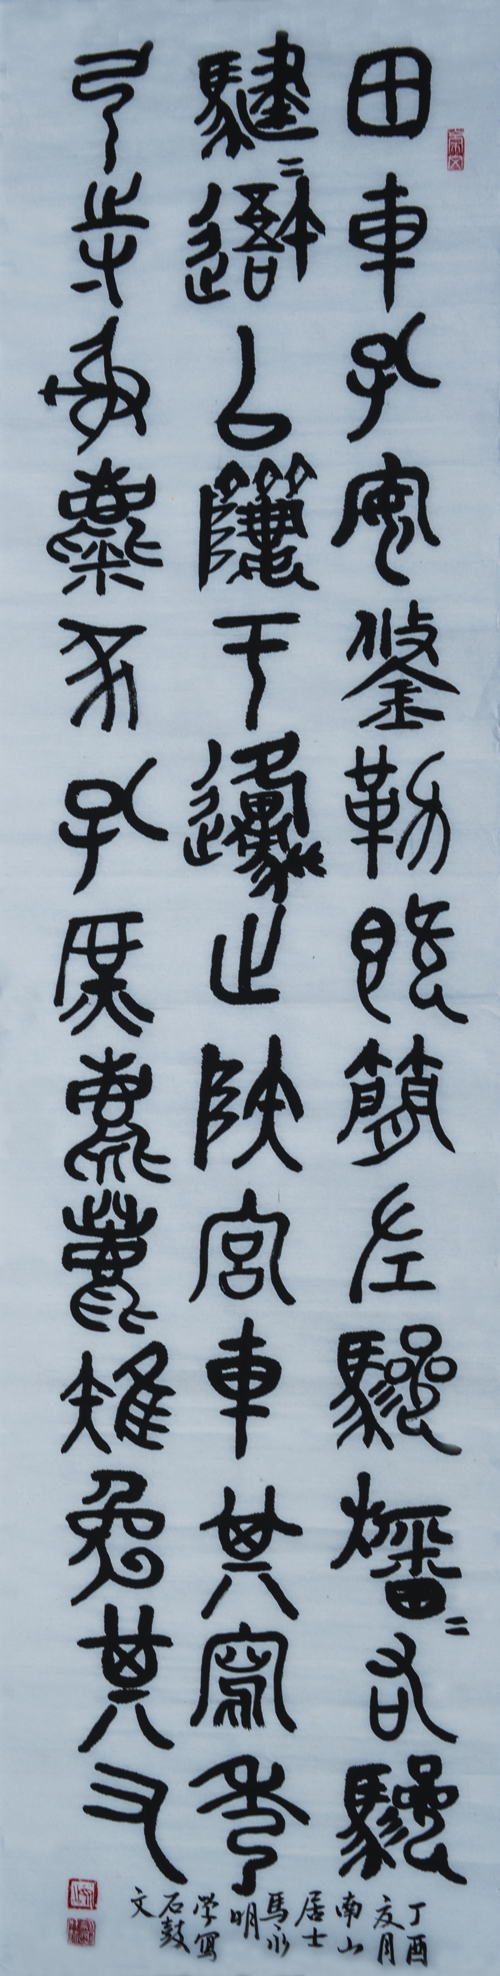 田車孔安鋚勒既簡左驂旛〻右驂
騝〻吾以隮于邍止陝宮車其寫秀
弓寺射麋豕孔庶麀鹿雉兔其又
丁酉
亥月
南山
居士
馬永
明
學寫
石鼓
文